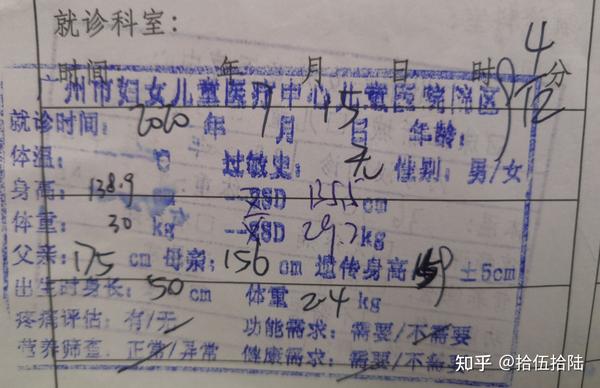 就诊科室：
时间 年 月 日 时 分
州市妇女儿童医疗中心儿童医院院区
就诊时间：2020年7月15日 年龄：9 4/12
体温： ℃ 过敏史：无 性别：男/女
身高：138.9 SD 135.5cm
体重：30 kg SD 29.7kg
父亲：175cm 母亲：156cm 遗传身高 159 ±5cm
出生时身长：50cm 体重 2.4 kg
疼痛评估：有/无 功能需求：需要/不需要
营养筛查：正常/异常 健康需求：需要/不需要
知乎 @拾伍拾陆